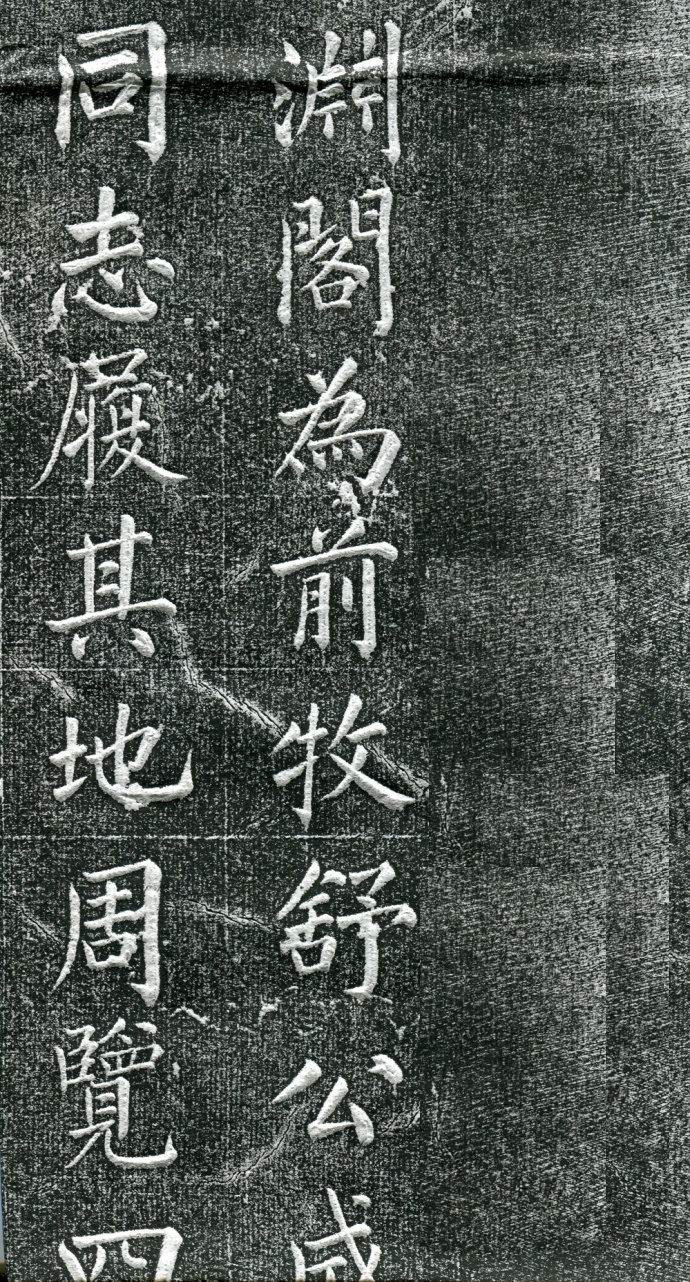 淵閣為前牧舒公咸
同志履其地周覽四